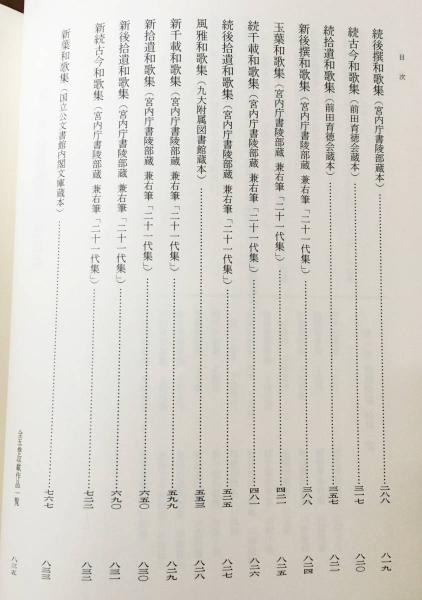 目次
続後撰和歌集（宮内庁書陵部蔵本）……二八八 八一九
続古今和歌集（前田育徳会蔵本）……三一七 八二〇
続拾遺和歌集（前田育徳会蔵本）……三五七 八二一
新後撰和歌集（宮内庁書陵部蔵 兼右筆「二十一代集」）……三八八 八二四
玉葉和歌集（宮内庁書陵部蔵 兼右筆「二十一代集」）……四二一 八二五
続千載和歌集（宮内庁書陵部蔵 兼右筆「二十一代集」）……四八一 八二六
続後拾遺和歌集（宮内庁書陵部蔵 兼右筆「二十一代集」）……五二五 八二七
風雅和歌集（九大附属図書館蔵本）……五五三 八二八
新千載和歌集（宮内庁書陵部蔵 兼右筆「二十一代集」）……五九九 八二九
新拾遺和歌集（宮内庁書陵部蔵 兼右筆「二十一代集」）……六五〇 八三〇
新後拾遺和歌集（宮内庁書陵部蔵 兼右筆「二十一代集」）……六九〇 八三一
新続古今和歌集（宮内庁書陵部蔵 兼右筆「二十一代集」）……七二二 八三二
新葉和歌集（国立公文書館内閣文庫蔵本）……七六七 八三三
全五巻収載作品一覧 八三五